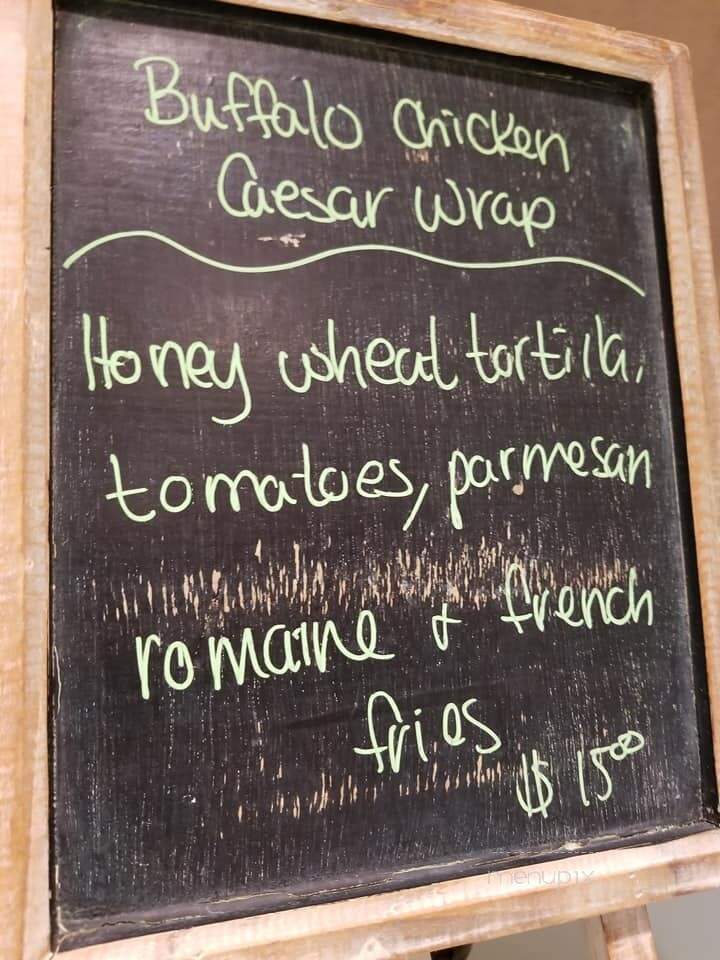 Buffalo Chicken
Caesar Wrap
Honey wheat tortilla,
tomatoes, parmesan
romaine & french
fries
$ 15⁰⁰
menupix